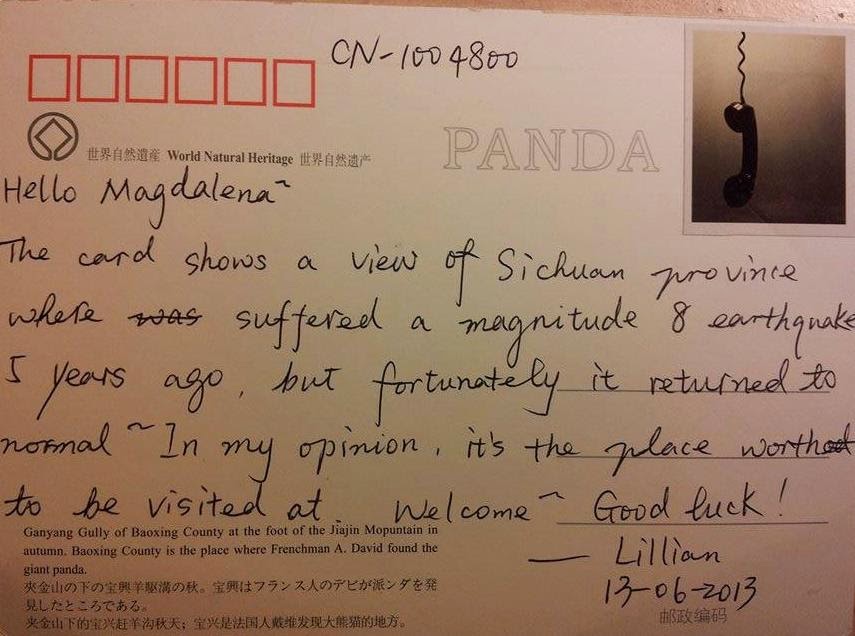 CN-1004800
世界自然遺産 World Natural Heritage 世界自然遗产
PANDA
Hello Magdalena~
The card shows a view of Sichuan province
where was suffered a magnitude 8 earthquake
5 years ago, but fortunately it returned to
normal ~ In my opinion, it's the place worthed
to be visited at. Welcome ~ Good luck!
— Lillian
13-06-2013
Ganyang Gully of Baoxing County at the foot of the Jiajin Mopuntain in
autumn. Baoxing County is the place where Frenchman A. David found the
giant panda.
夾金山の下の宝興羊駆溝の秋。宝興はフランス人のデビが派ンダを発
見したところである。
夹金山下的宝兴赶羊沟秋天；宝兴是法国人戴维发现大熊猫的地方。
邮政编码